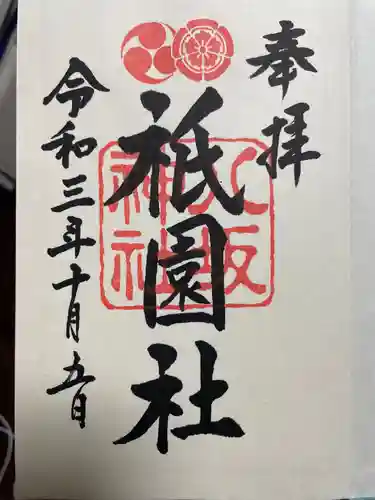 奉拝
祇園社
八坂
神社
令和三年十月五日